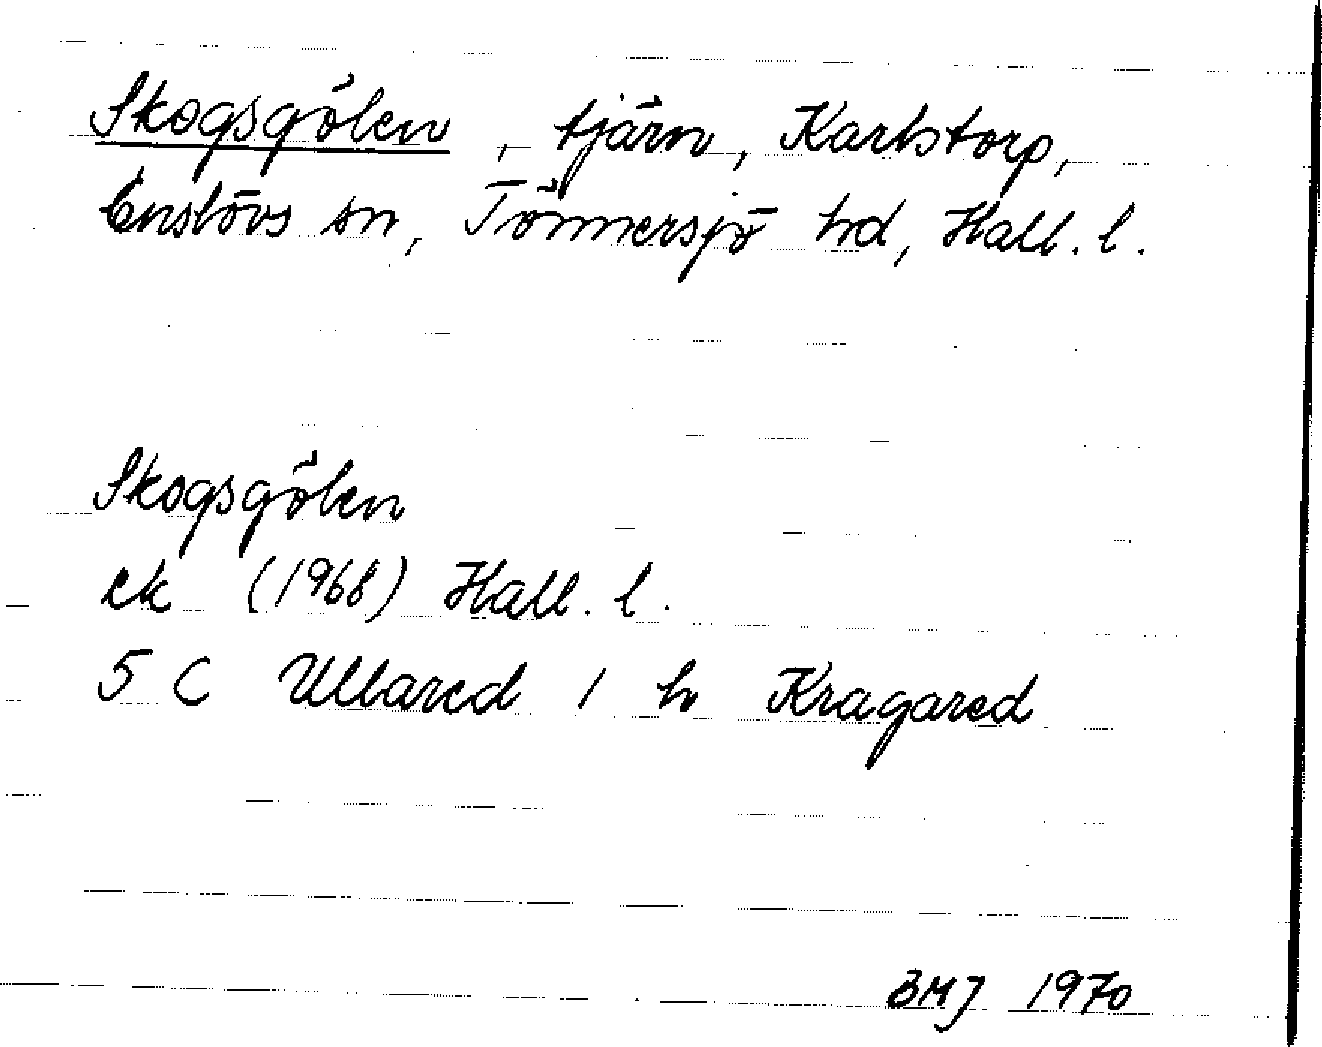 Skogsgölen, tjärn, Karlstorp,
Enslövs sn, Tönnersjö hd, Hall. l.
Skogsgölen
ek (1968) Hall. l.
5 C Ullared / h Kragared
BMJ 1970